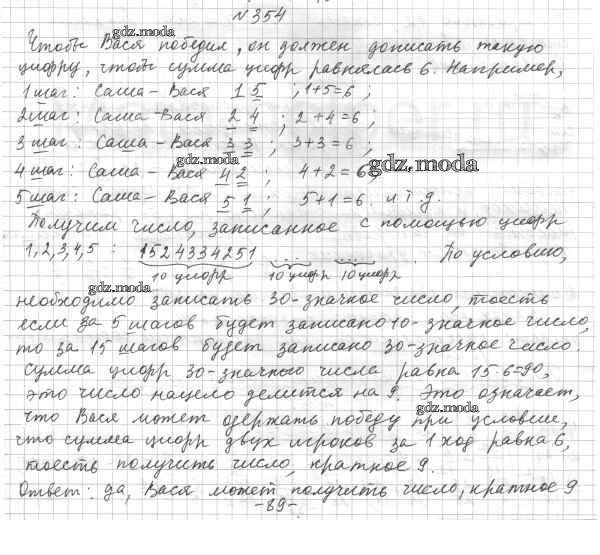 №354
gdz.moda
Чтобы Вася победил, он должен дописать такую
цифру, чтобы сумма цифр равнялась 6. Например,
1 шаг: Саша – Вася 1 5 ; 1+5=6 ;
2 шаг: Саша – Вася 2 4 ; 2+4=6 ;
3 шаг: Саша – Вася 3 3 ; 3+3=6 ;
gdz.moda gdz.moda
4 шаг: Саша – Вася 4 2 ; 4+2=6 ;
5 шаг: Саша – Вася 5 1 ; 5+1=6. и т.д.
Получим число, записанное с помощью цифр
1, 2, 3, 4, 5 : 1524334251 ... ... . По условию,
10 цифр 10 цифр 10 цифр
gdz.moda
необходимо записать 30-значное число, тоесть
если за 5 шагов будет записано 10-значное число,
то за 15 шагов будет записано 30-значное число.
Сумма цифр 30-значного числа равна 15·6=90,
это число нацело делится на 9. Это означает,
gdz.moda
что Вася может одержать победу при условие,
что сумма цифр двух игроков за 1 ход равна 6,
тоесть получить число, кратное 9.
gdz.moda
Ответ: да, Вася может получить число, кратное 9
-89-